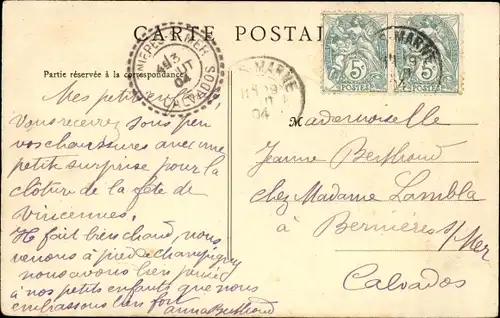 CARTE POSTALE
Partie réservée à la correspondance
BERNIÈRES S MER
13
AOUT
04
CALVADOS
MARNE
04
5
POSTES
5
POSTES
MARNE
Mes petits enfants
Vous recevrez sous peu
vos chaussures avec une
petite surprise pour la
clôture de la fête de
Vincennes.
Il fait bien chaud, nous
venons à pied de Champigny
nous avons bien pensé
à nos petits enfants que nous
embrassons bien fort Anna Berthoud
M
Mademoiselle
Jeanne Berthoud
chez Madame Lambla
à Bernières s/Mer
Calvados